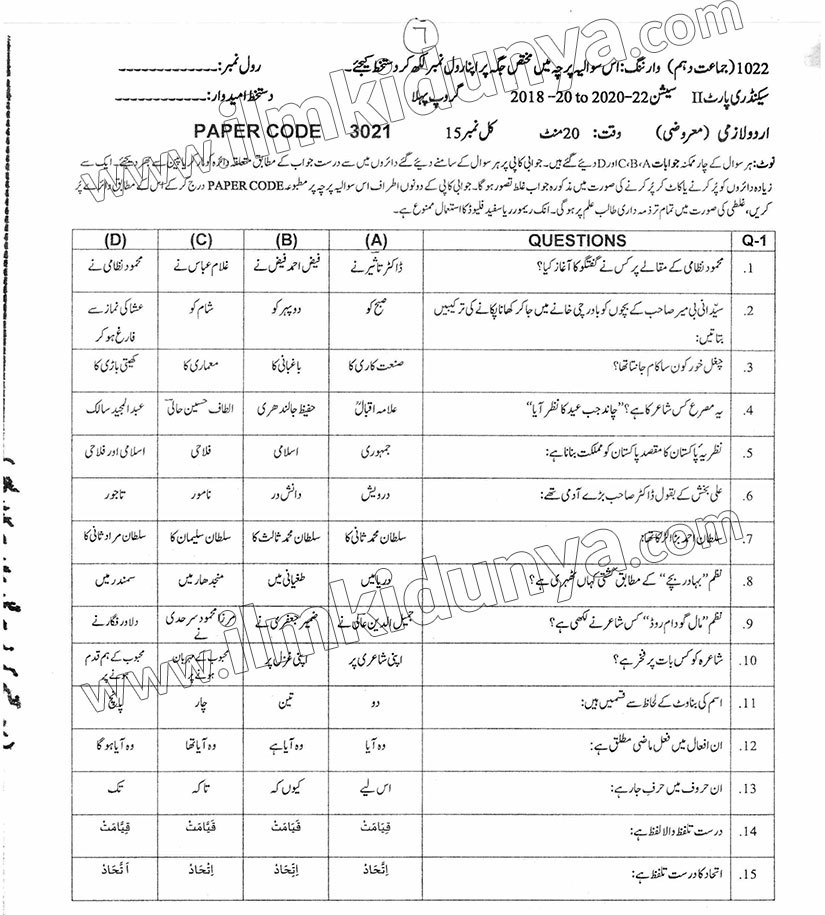 ٦
1022 (جماعت دہم) وارننگ: اس سوالیہ پرچہ میں مختص جگہ پر اپنا رول نمبر لکھ کر دستخط کیجئے۔ رول نمبر: ____________
سیکنڈری پارٹ II سیشن 2018 -20 to 2020-22 گروپ پہلا دستخط امیدوار: ____________
اردو لازمی (معروضی) وقت: 20 منٹ کل نمبر 15 PAPER CODE 3021
نوٹ: ہر سوال کے چار ممکنہ جوابات A، B، C اور D دیئے گئے ہیں۔ جوابی کاپی پر ہر سوال کے سامنے دیئے گئے دائروں میں سے درست جواب کے مطابق متعلقہ دائرہ کو مارکر یا پین سے بھر دیجئے۔ ایک سے
زیادہ دائروں کو پُر کرنے یا کاٹ کر پُر کرنے کی صورت میں مذکورہ جواب غلط تصور ہوگا۔ جوابی کاپی کے دونوں اطراف اس سوالیہ پرچہ پر مطبوعہ PAPER CODE درج کر کے اس کے مطابق دائرے پُر
کریں، غلطی کی صورت میں تمام تر ذمہ داری طالب علم پر ہوگی۔ انک ریموور یا سفید فلیوڈ کا استعمال ممنوع ہے۔
Q-1 QUESTIONS (A) (B) (C) (D)
1. محمود نظامی کے مقالے پر کس نے گفتگو کا آغاز کیا؟ ڈاکٹر تاثیر نے فیض احمد فیض نے غلام عباس نے محمود نظامی نے
2. سیّدانی بی میر صاحب کے بچوں کو باورچی خانے میں جا کر کھانا پکانے کی ترکیبیں صبح کو دوپہر کو شام کو عشا کی نماز سے
بتاتیں: فارغ ہو کر
3. چغل خور کون سا کام جانتا تھا؟ صنعت کاری کا باغبانی کا معماری کا کھیتی باڑی کا
4. یہ مصرع کس شاعر کا ہے؟ "چاند جب عید کا نظر آیا" علامہ اقبالؒ حفیظ جالندھری الطاف حسین حالیؔ عبدالمجید سالک
5. نظریۂ پاکستان کا مقصد پاکستان کو مملکت بنانا ہے: جمہوری اسلامی فلاحی اسلامی اور فلاحی
6. علی بخش کے بقول ڈاکٹر صاحب بڑے آدمی تھے: درویش دانش ور نامور تاجور
7. سلطان احمد بڑا لڑکا تھا: سلطان محمد ثانی کا سلطان محمد ثالث کا سلطان سلیمان کا سلطان مراد ثانی کا
8. نظم "بہادر بچے" کے مطابق کشتی کہاں ٹھہری ہے؟ دریا میں طغیانی میں منجدھار میں سمندر میں
9. نظم "مال گودام روڈ" کس شاعر نے لکھی ہے؟ جمیل الدین عالی نے ضمیر جعفری نے مرزا محمود سرحدی نے دلاور فگار نے
10. شاعرہ کو کس بات پر فخر ہے؟ اپنی شاعری پر اپنی غزل پر محبوب کے مہربان ہونے پر محبوب کے ہم قدم ہونے پر
11. اسم کی بناوٹ کے لحاظ سے قسمیں ہیں: دو تین چار پانچ
12. ان افعال میں فعل ماضی مطلق ہے: وہ آیا وہ آیا ہے وہ آیا تھا وہ آیا ہوگا
13. ان حروف میں حرف جار ہے: اس لیے کیوں کہ تا کہ تک
14. درست تلفظ والا لفظ ہے: قِیَامَتْ قَیَامَتْ قَیَّامَتْ قِیَّامَتْ
15. اتحاد کا درست تلفظ ہے: اِتَّحَادْ اِتِّحَادْ اِتْحَادْ اَتَّحَادْ
www.ilmkidunya.com
www.ilmkidunya.com
www.ilmkidunya.com